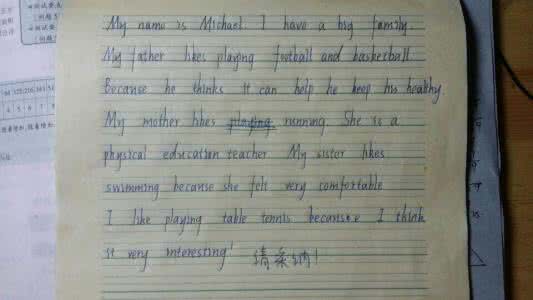 My name is Michael. I have a big family.
My father likes playing football and basketball.
Because he thinks it can help he keep his healthy.
My mother likes playing running. She is a
physical education teacher. My sister likes
swimming because she felt very comfortable
I like playing table tennis because I think
it very interesting!
请采纳!